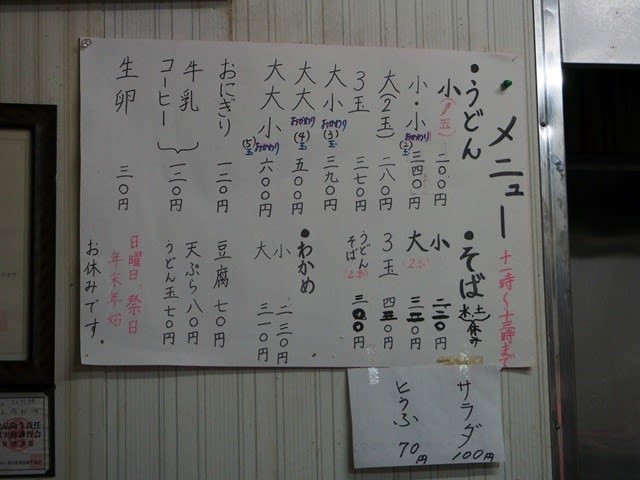 メニュー
十一時〜十三時まで
・うどん
小(1玉) 二〇〇円
小・小おかわり(2玉) 三四〇円
大(2玉) 二八〇円
3玉 三七〇円
大小おかわり(3玉) 三九〇円
大大おかわり(4玉) 五〇〇円
大大小おかわり(5玉) 六〇〇円
おにぎり 一二〇円
牛乳
コーヒー 一二〇円
生卵 三〇円
・そば(土水休み)
小 二二〇円
大(2玉) 三二〇円
3玉 四三〇円
うどんそば(2玉) 三〇〇円
・わかめ
小 二三〇円
大 三一〇円
豆腐 七〇円
天ぷら 八〇円
うどん玉 七〇円
日曜日 祭日
年末年始
お休みです。
サラダ 100円
とうふ 70円